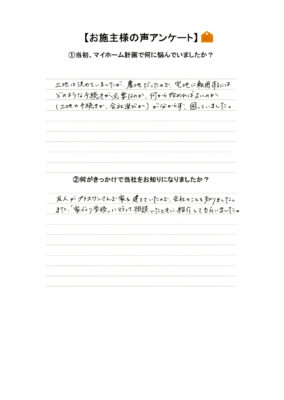 【お施主様の声アンケート】
①当初、マイホーム計画で何に悩んでいましたか？
土地は決めていましたが、農地だったので、宅地に転用するには
どのような手続きが必要なのか、何から始めればよいのか
(土地の手続きか、会社選びか)が分からず、困っていました。
②何がきっかけで当社をお知りになりましたか？
友人がプラスワンさんで家を建てていたので、会社のことを知りました。
また、「家づくり学校」に行って相談したときに紹介してもらいました。